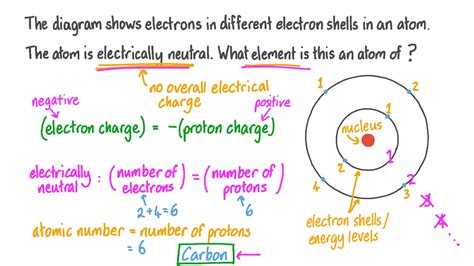 The diagram shows electrons in different electron shells in an atom.
The atom is electrically neutral. What element is this an atom of ?
no overall electrical
charge
negative
positive
(electron charge) = -(proton charge)
electrically
neutral : (number of electrons) = (number of protons)
2+4=6
atomic number = number of protons
= 6
Carbon
1
2
nucleus
1
2
4
3
2
1
electron shells/
energy levels
4
3